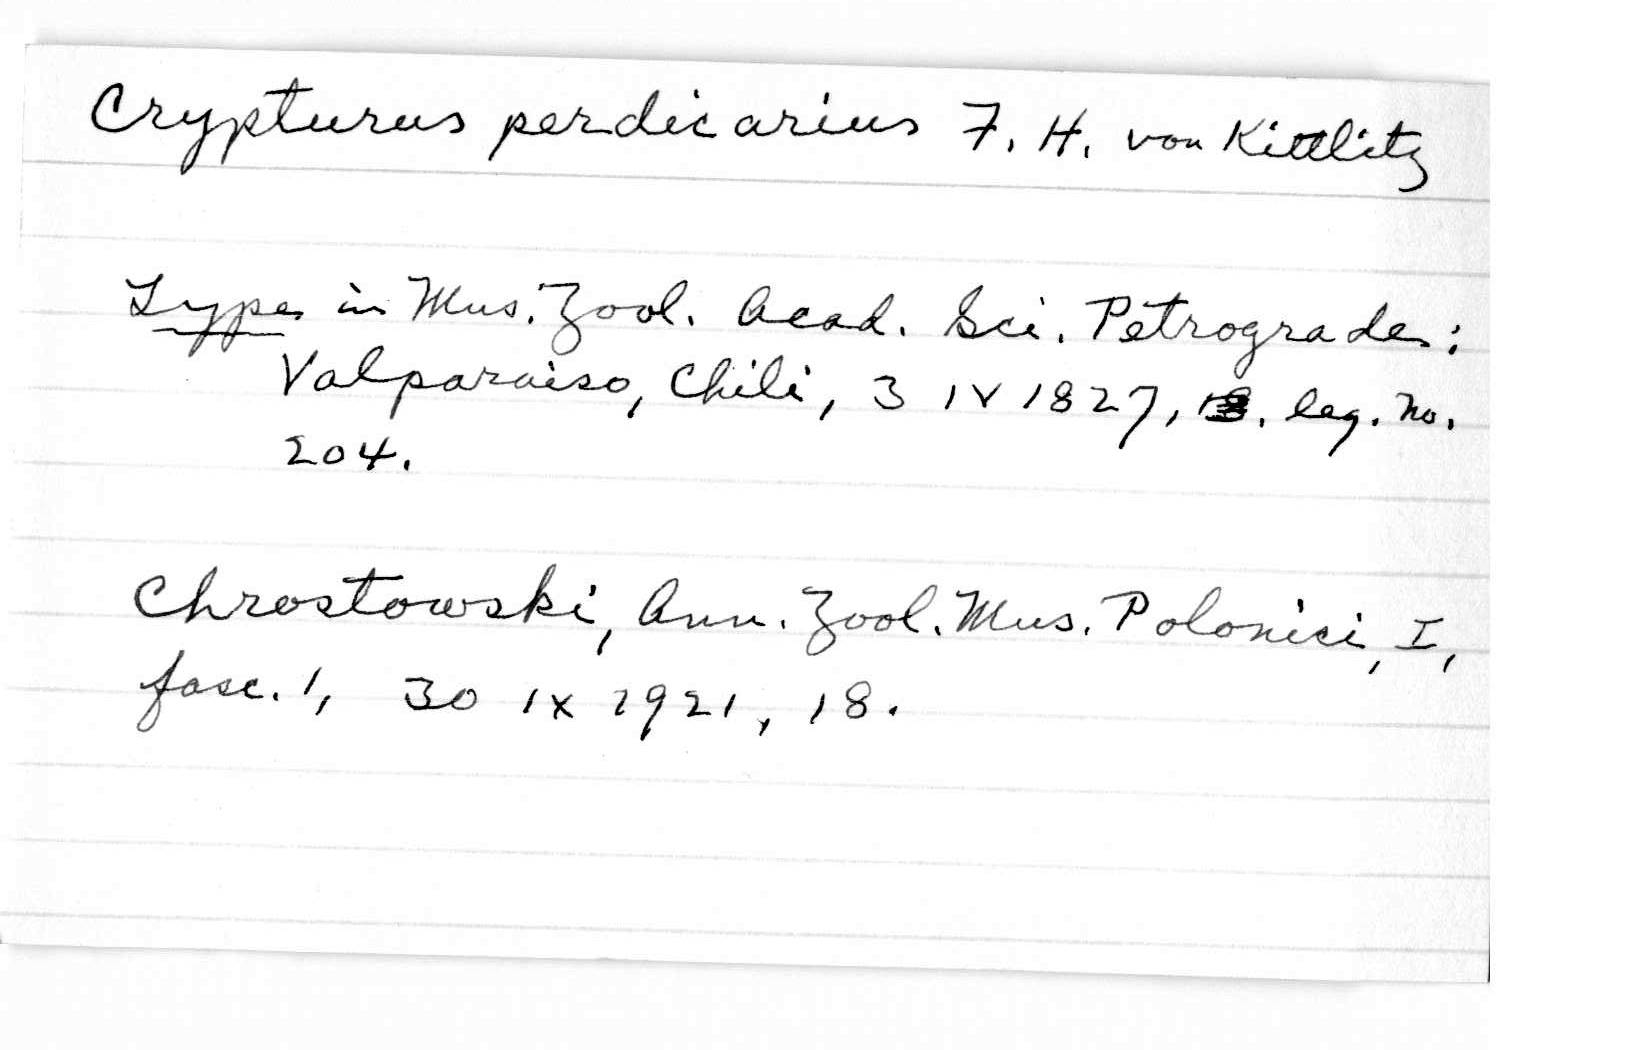 Crypturus perdicarius F. H. von Kittlitz
Type in Mus. Zool. Acad. Sci. Petrograde:
Valparaiso, Chili, 3 IV 1827, leg. no.
204.
Chrostowski, Ann. Zool. Mus. Polonici, I,
fasc. 1, 30 IX 1921, 18.